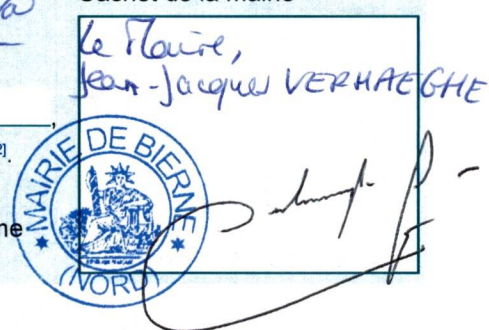 Cachet de la mairie
Le Maire,
Jean-Jacques VERHAEGHE
MAIRIE DE BIERNE
(NORD)